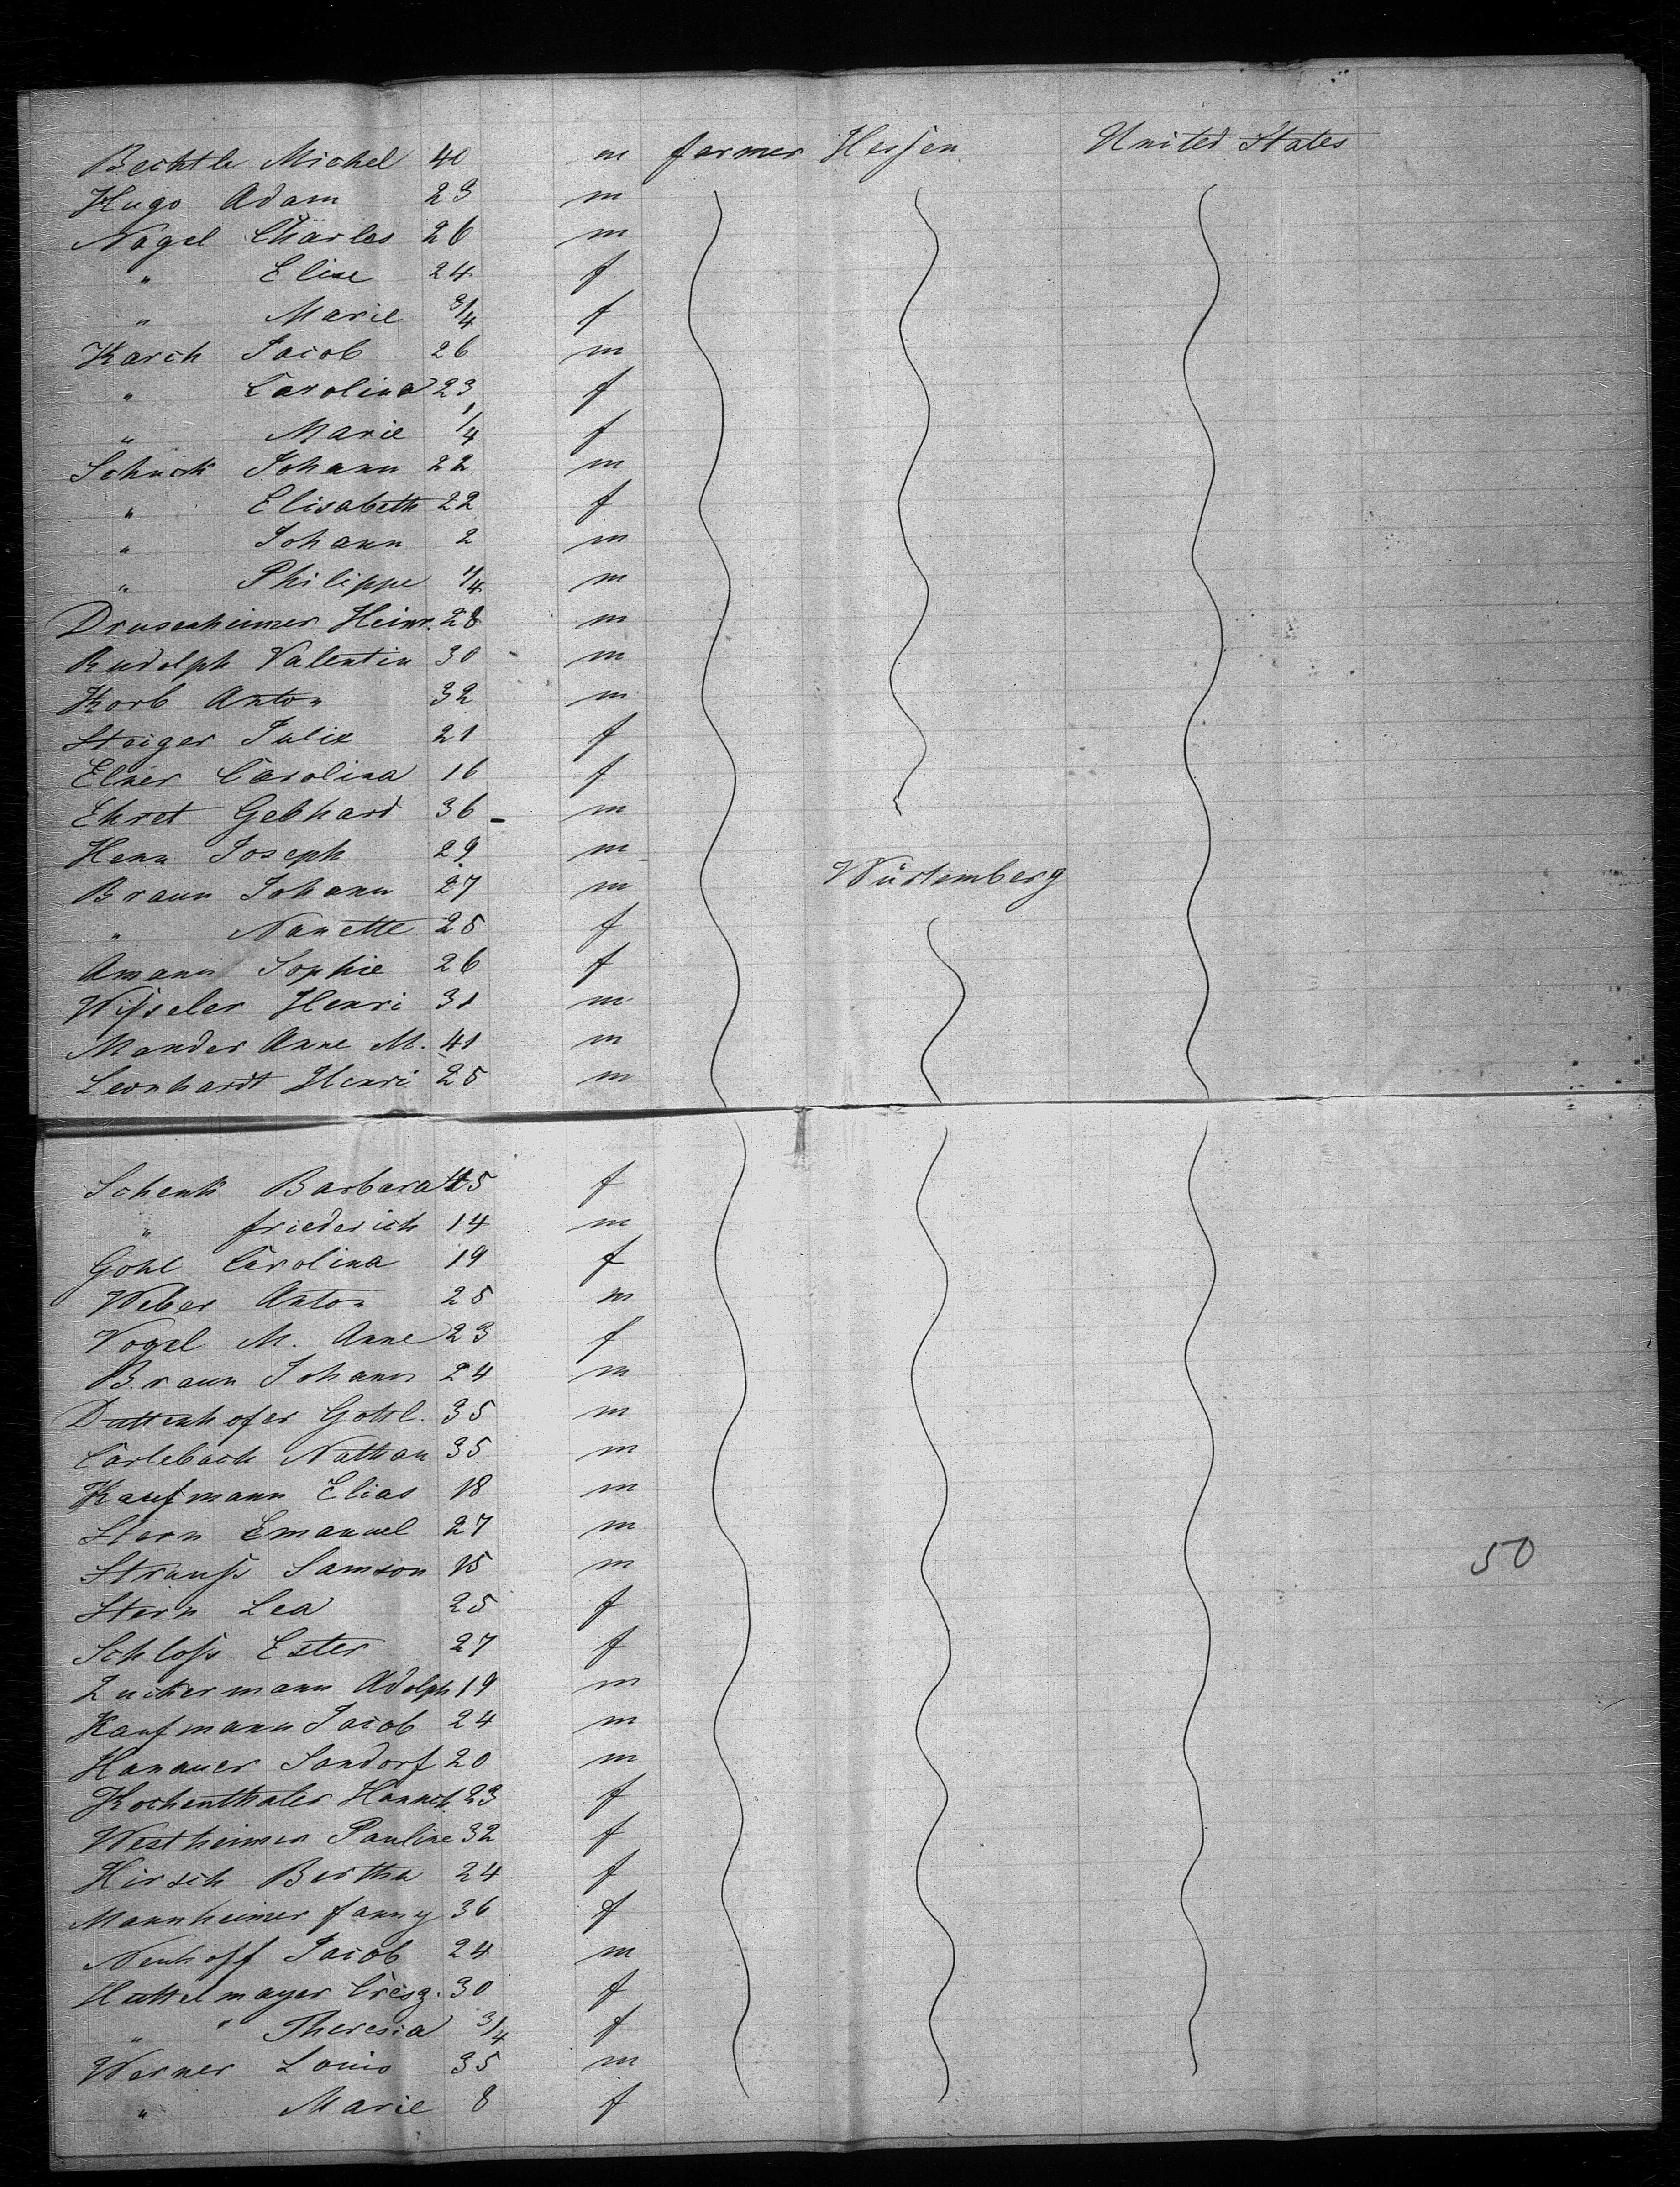 Bechtle Michel 40 m farmer Hessen United States
Hugo Adam 23 m
Nagel Charles 26 m
" Elise 24 f
" Marie 3/4 f
Karch Jacob 26 m
" Carolina 23 f
" Marie 1/4 f
Schuck Johann 22 m
" Elisabeth 22 f
" Johann 2 m
" Philippe 1/4 m
Drusenheimer Heinr. 28 m
Rudolph Valentin 30 m
Korb Anton 32 m
Steiger Julie 21 f
Elner Carolina 16 f
Ehret Gebhard 36 m
Henn Joseph 29 m
Braun Johann 27 m Würtemberg
" Nanette 25 f
Amann Sophie 26 f
Wißeler Henri 31 m
Mander Anne M. 41 m
Leonhardt Henri 25 m
Schenk Barbara 45 f
" friederich 14 m
Gohl Carolina 19 f
Weber Anton 25 m
Vogel M. Anne 23 f
Braun Johann 24 m
Duttenhofer Gottl. 35 m
Carlebach Nathan 35 m
Kaufmann Elias 18 m
Stern Emanuel 27 m
Strauß Samson 15 m 50
Stern Lea 25 f
Schloß Ester 27 f
Zuckermann Adolph 19 m
Kaufmann Jacob 24 m
Hanauer Sandorf 20 m
Kochenthaler Hannch. 23 f
Westheimer Pauline 32 f
Hirsch Bertha 24 f
Mannheimer fanny 36 f
Neuhoff Jacob 24 m
Huttelmayer Cresz. 30 f
" " Theresia 3/4 f
Werner Louis 35 m
" Marie 8 f